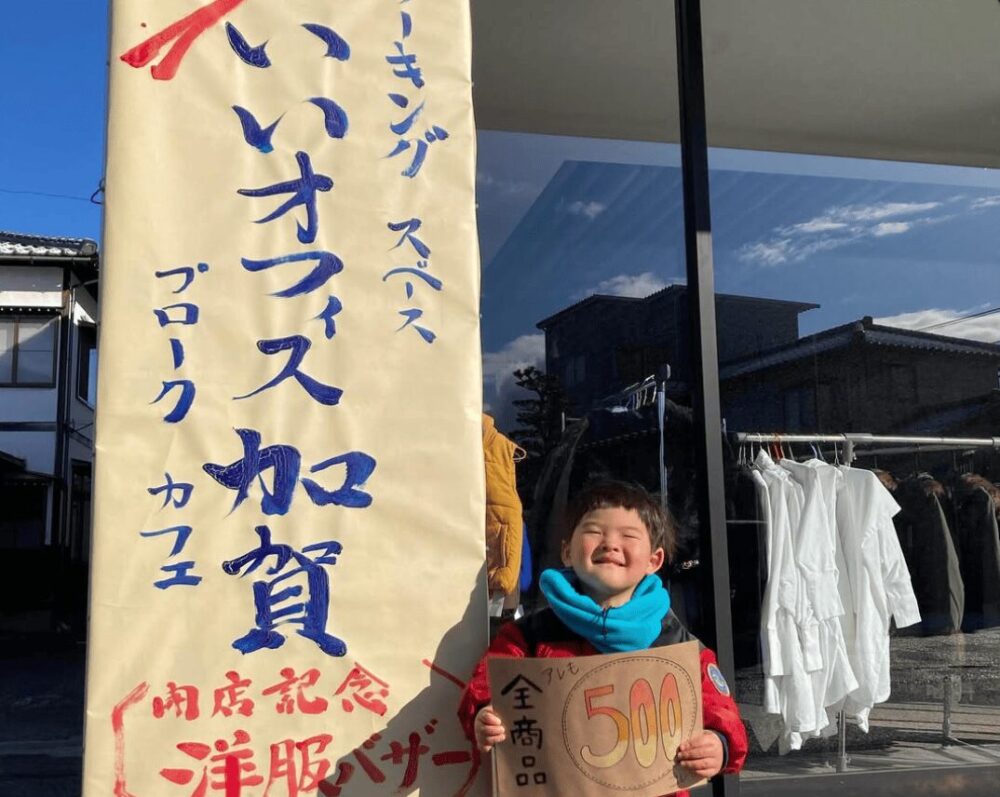 ーキング スペース
いいオフィス加賀
プローク カフェ
開店記念
洋服バザー
アレも
全商品
500